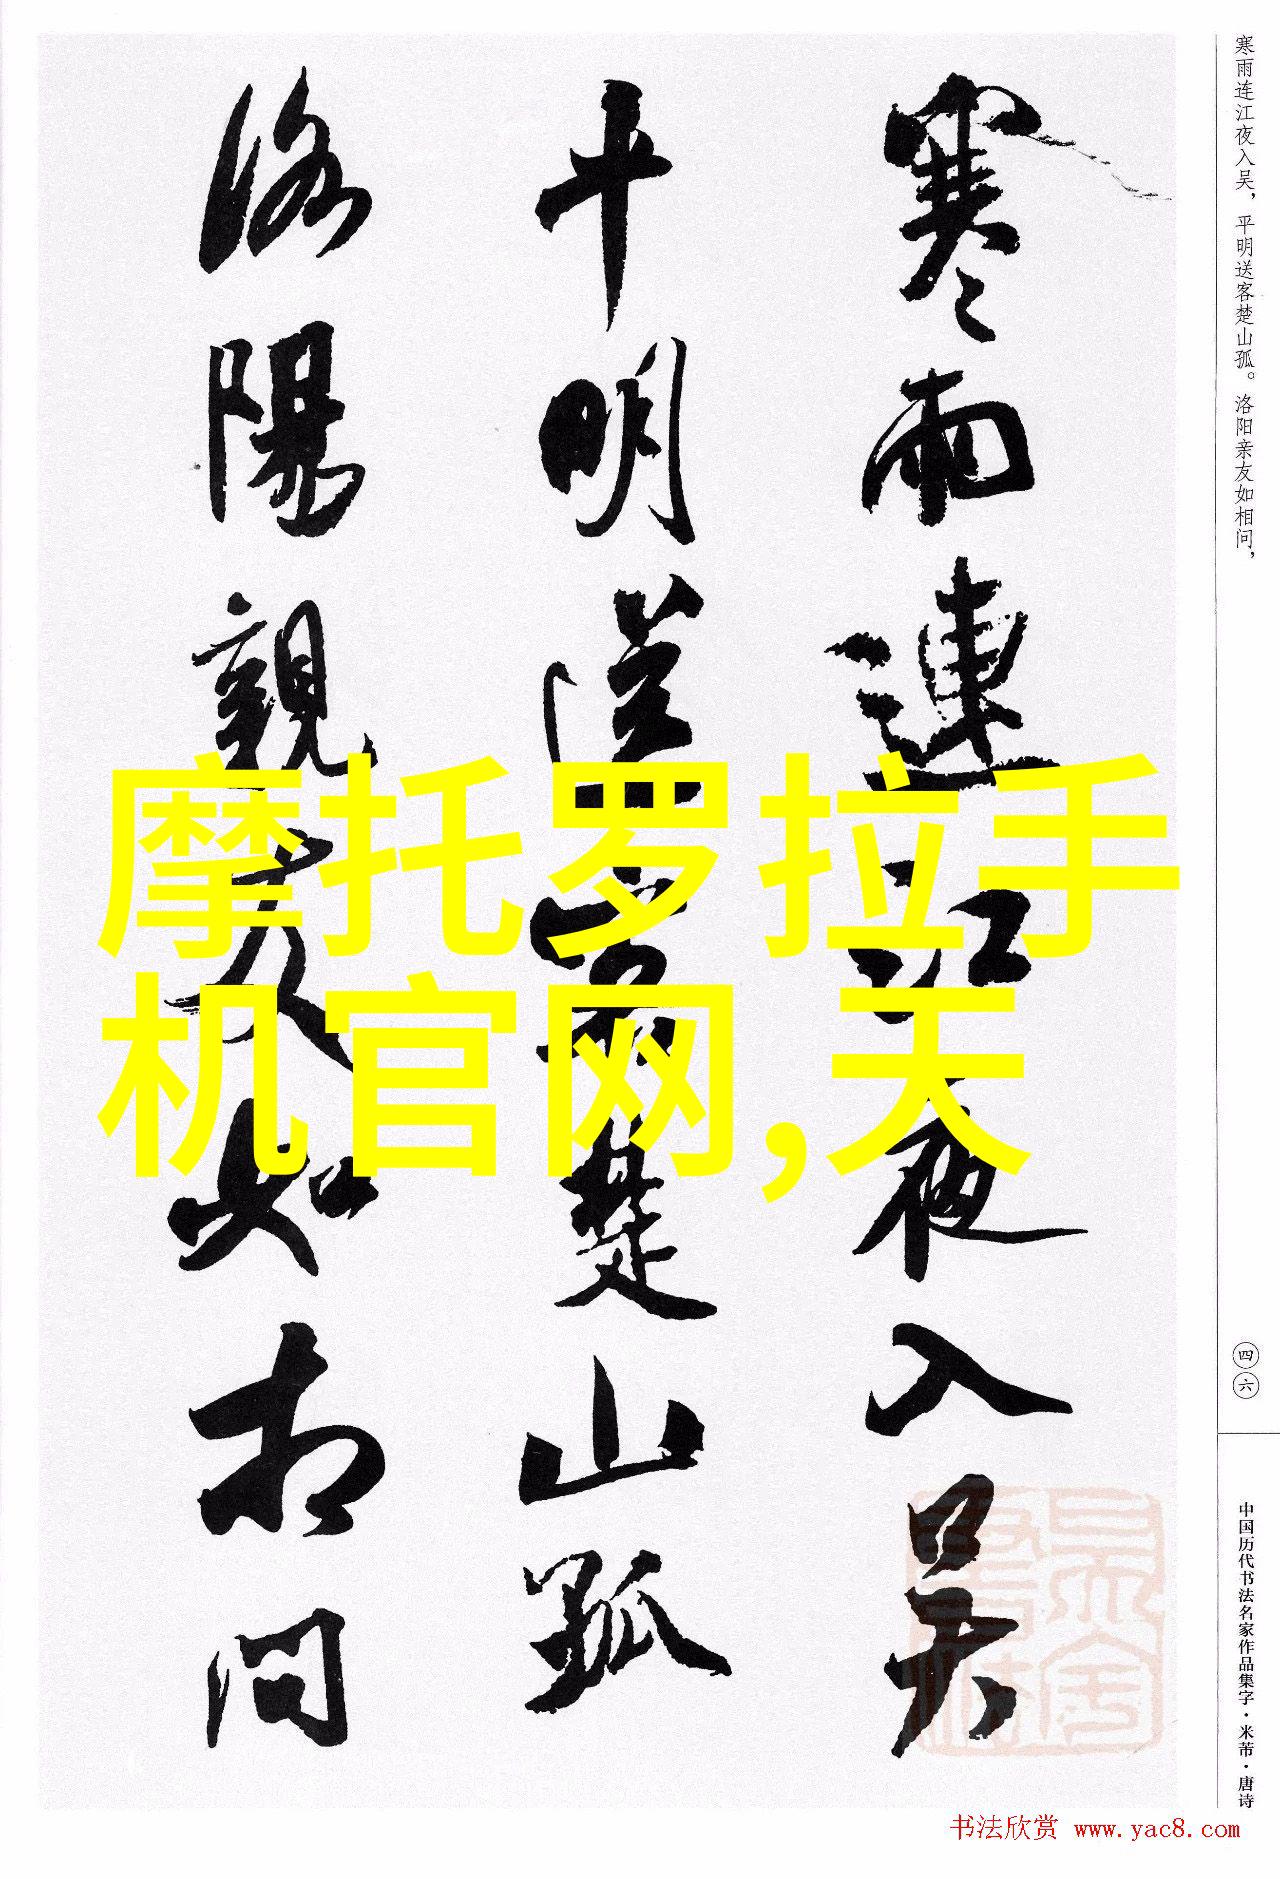 寒雨連江夜入吴
平明送客楚山孤
洛陽親友如相问
寒雨连江夜入吴，平明送客楚山孤。洛阳亲友如相问，
四六
中国历代书法名家作品集字·米芾·唐诗
摩托罗拉手
机官网,天
书法欣赏 www.yac8.com